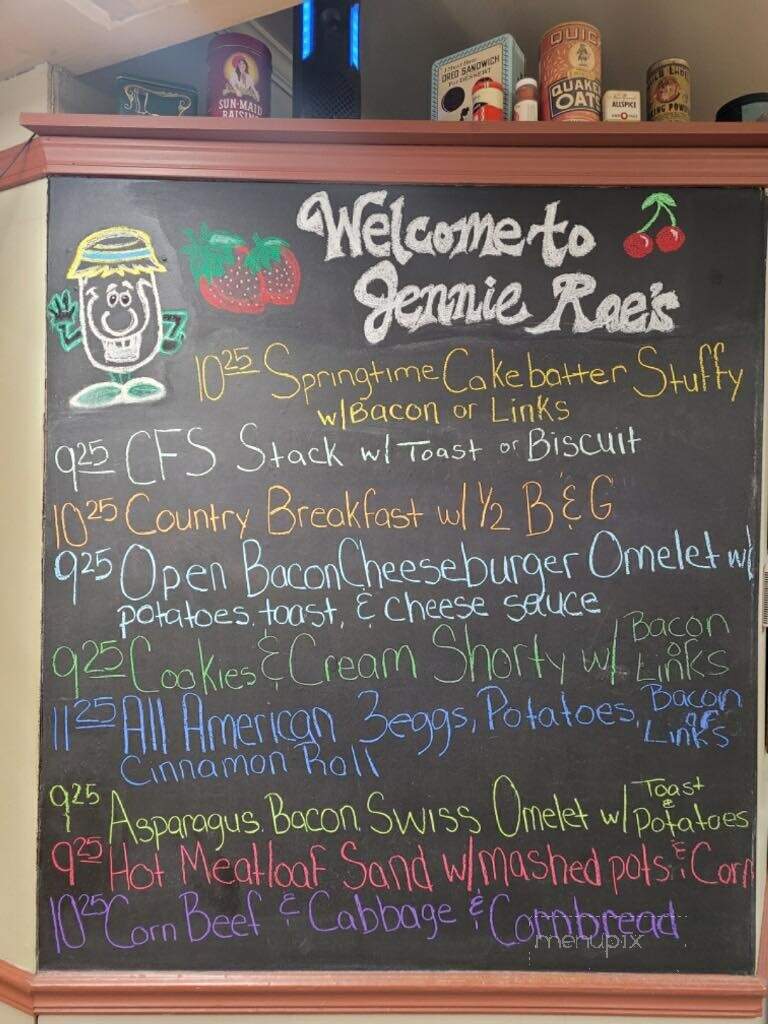 SUN-MAID
RAISINS
I Must Have
OREO SANDWICH
For DESSERT
QUICK
QUAKER
OATS
ALLSPICE
BAKING POWDER
Welcome to
Jennie Rae's
10 25 Springtime Cakebatter Stuffy
w/Bacon or Links
9 25 CFS Stack w/ Toast or Biscuit
10 25 Country Breakfast w/ 1/2 B & G
9 25 Open Bacon Cheeseburger Omelet w/
potatoes, toast, & cheese sauce
9 25 Cookies & Cream Shorty w/ Bacon or Links
11 25 All American 3eggs, Potatoes, Bacon or Links
Cinnamon Roll
9 25 Asparagus, Bacon, Swiss Omelet w/ Toast & Potatoes
9 25 Hot Meatloaf Sand w/mashed pots & Corn
10 25 Corn Beef & Cabbage & Cornbread
menupix